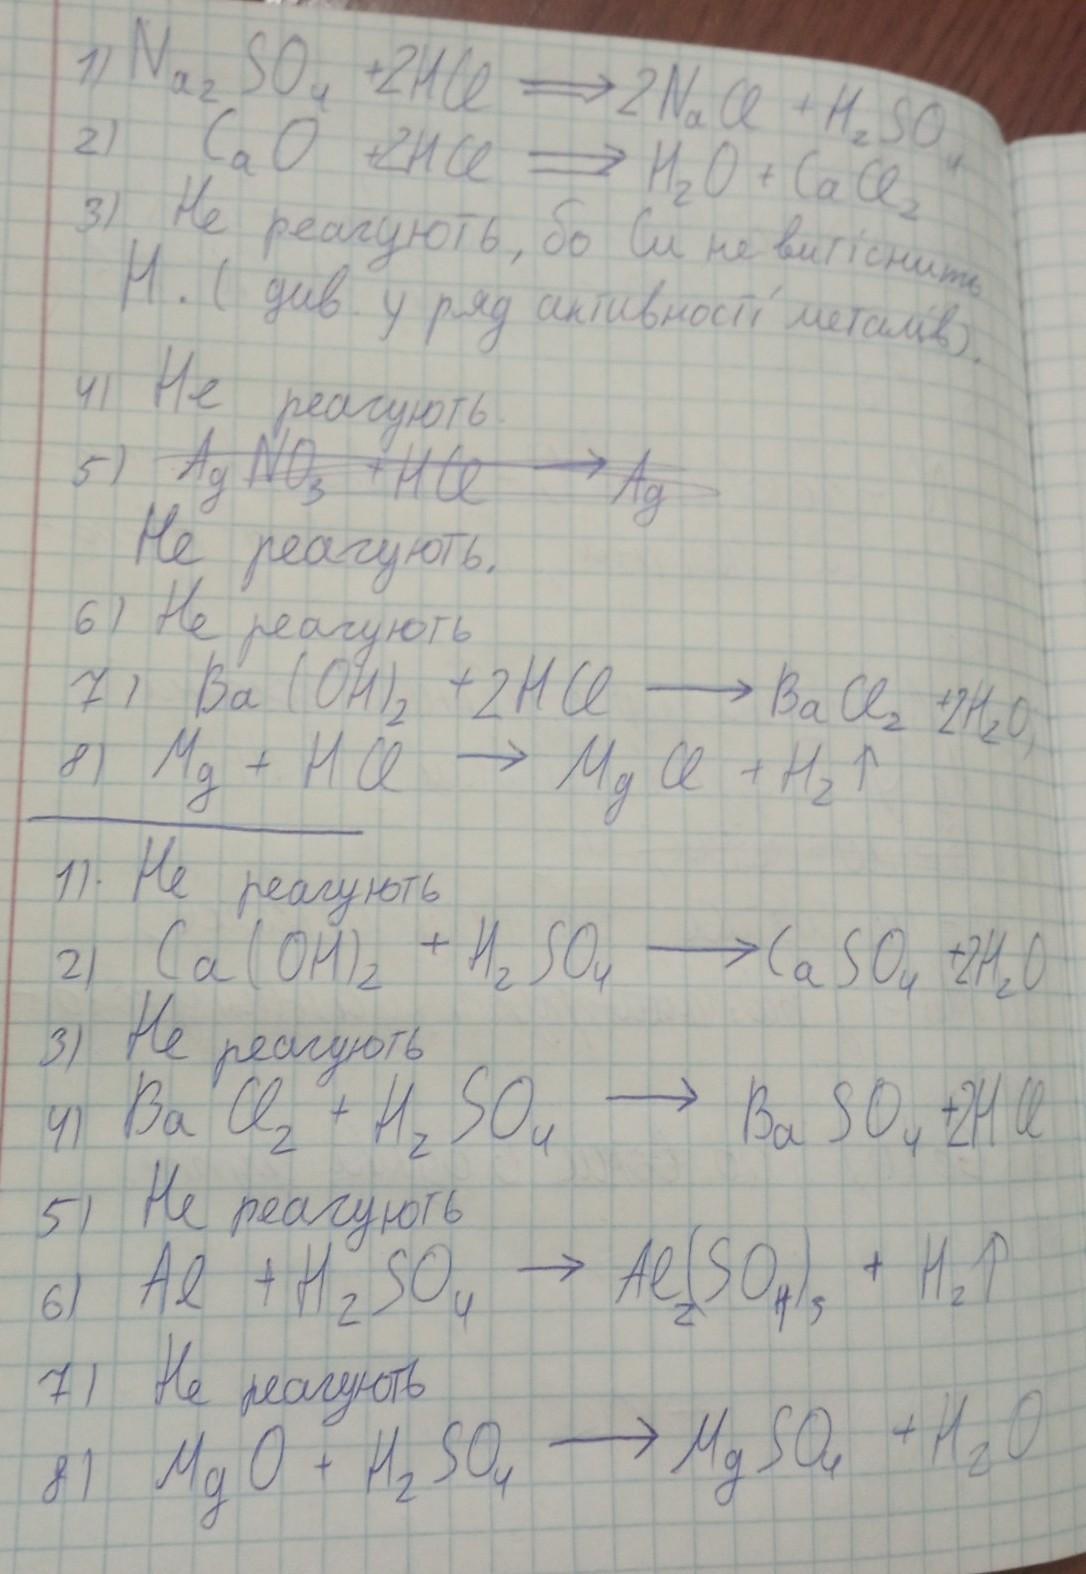 1) Na2SO4 +2HCl ⟹ 2NaCl + H2SO4
2) CaO +2HCl ⟹ H2O + CaCl2
3) Не реагують, бо Cu не витіснить
H. ( див. у ряд активності металів).
4) Не реагують.
5) AgNO3 + HCl ⟶ Ag
Не реагують.
6) Не реагують
7) Ba(OH)2 +2HCl ⟶ BaCl2 +2H2O,
8) Mg + HCl → MgCl + H2↑
1). Не реагують
2) Ca(OH)2 + H2SO4 ⟶ CaSO4 +2H2O
3) Не реагують
4) BaCl2 + H2SO4 → BaSO4 +2HCl
5) Не реагують
6) Al + H2SO4 → Al2(SO4)3 + H2↑
7) Не реагують
8) MgO + H2SO4 ⟶ MgSO4 + H2O